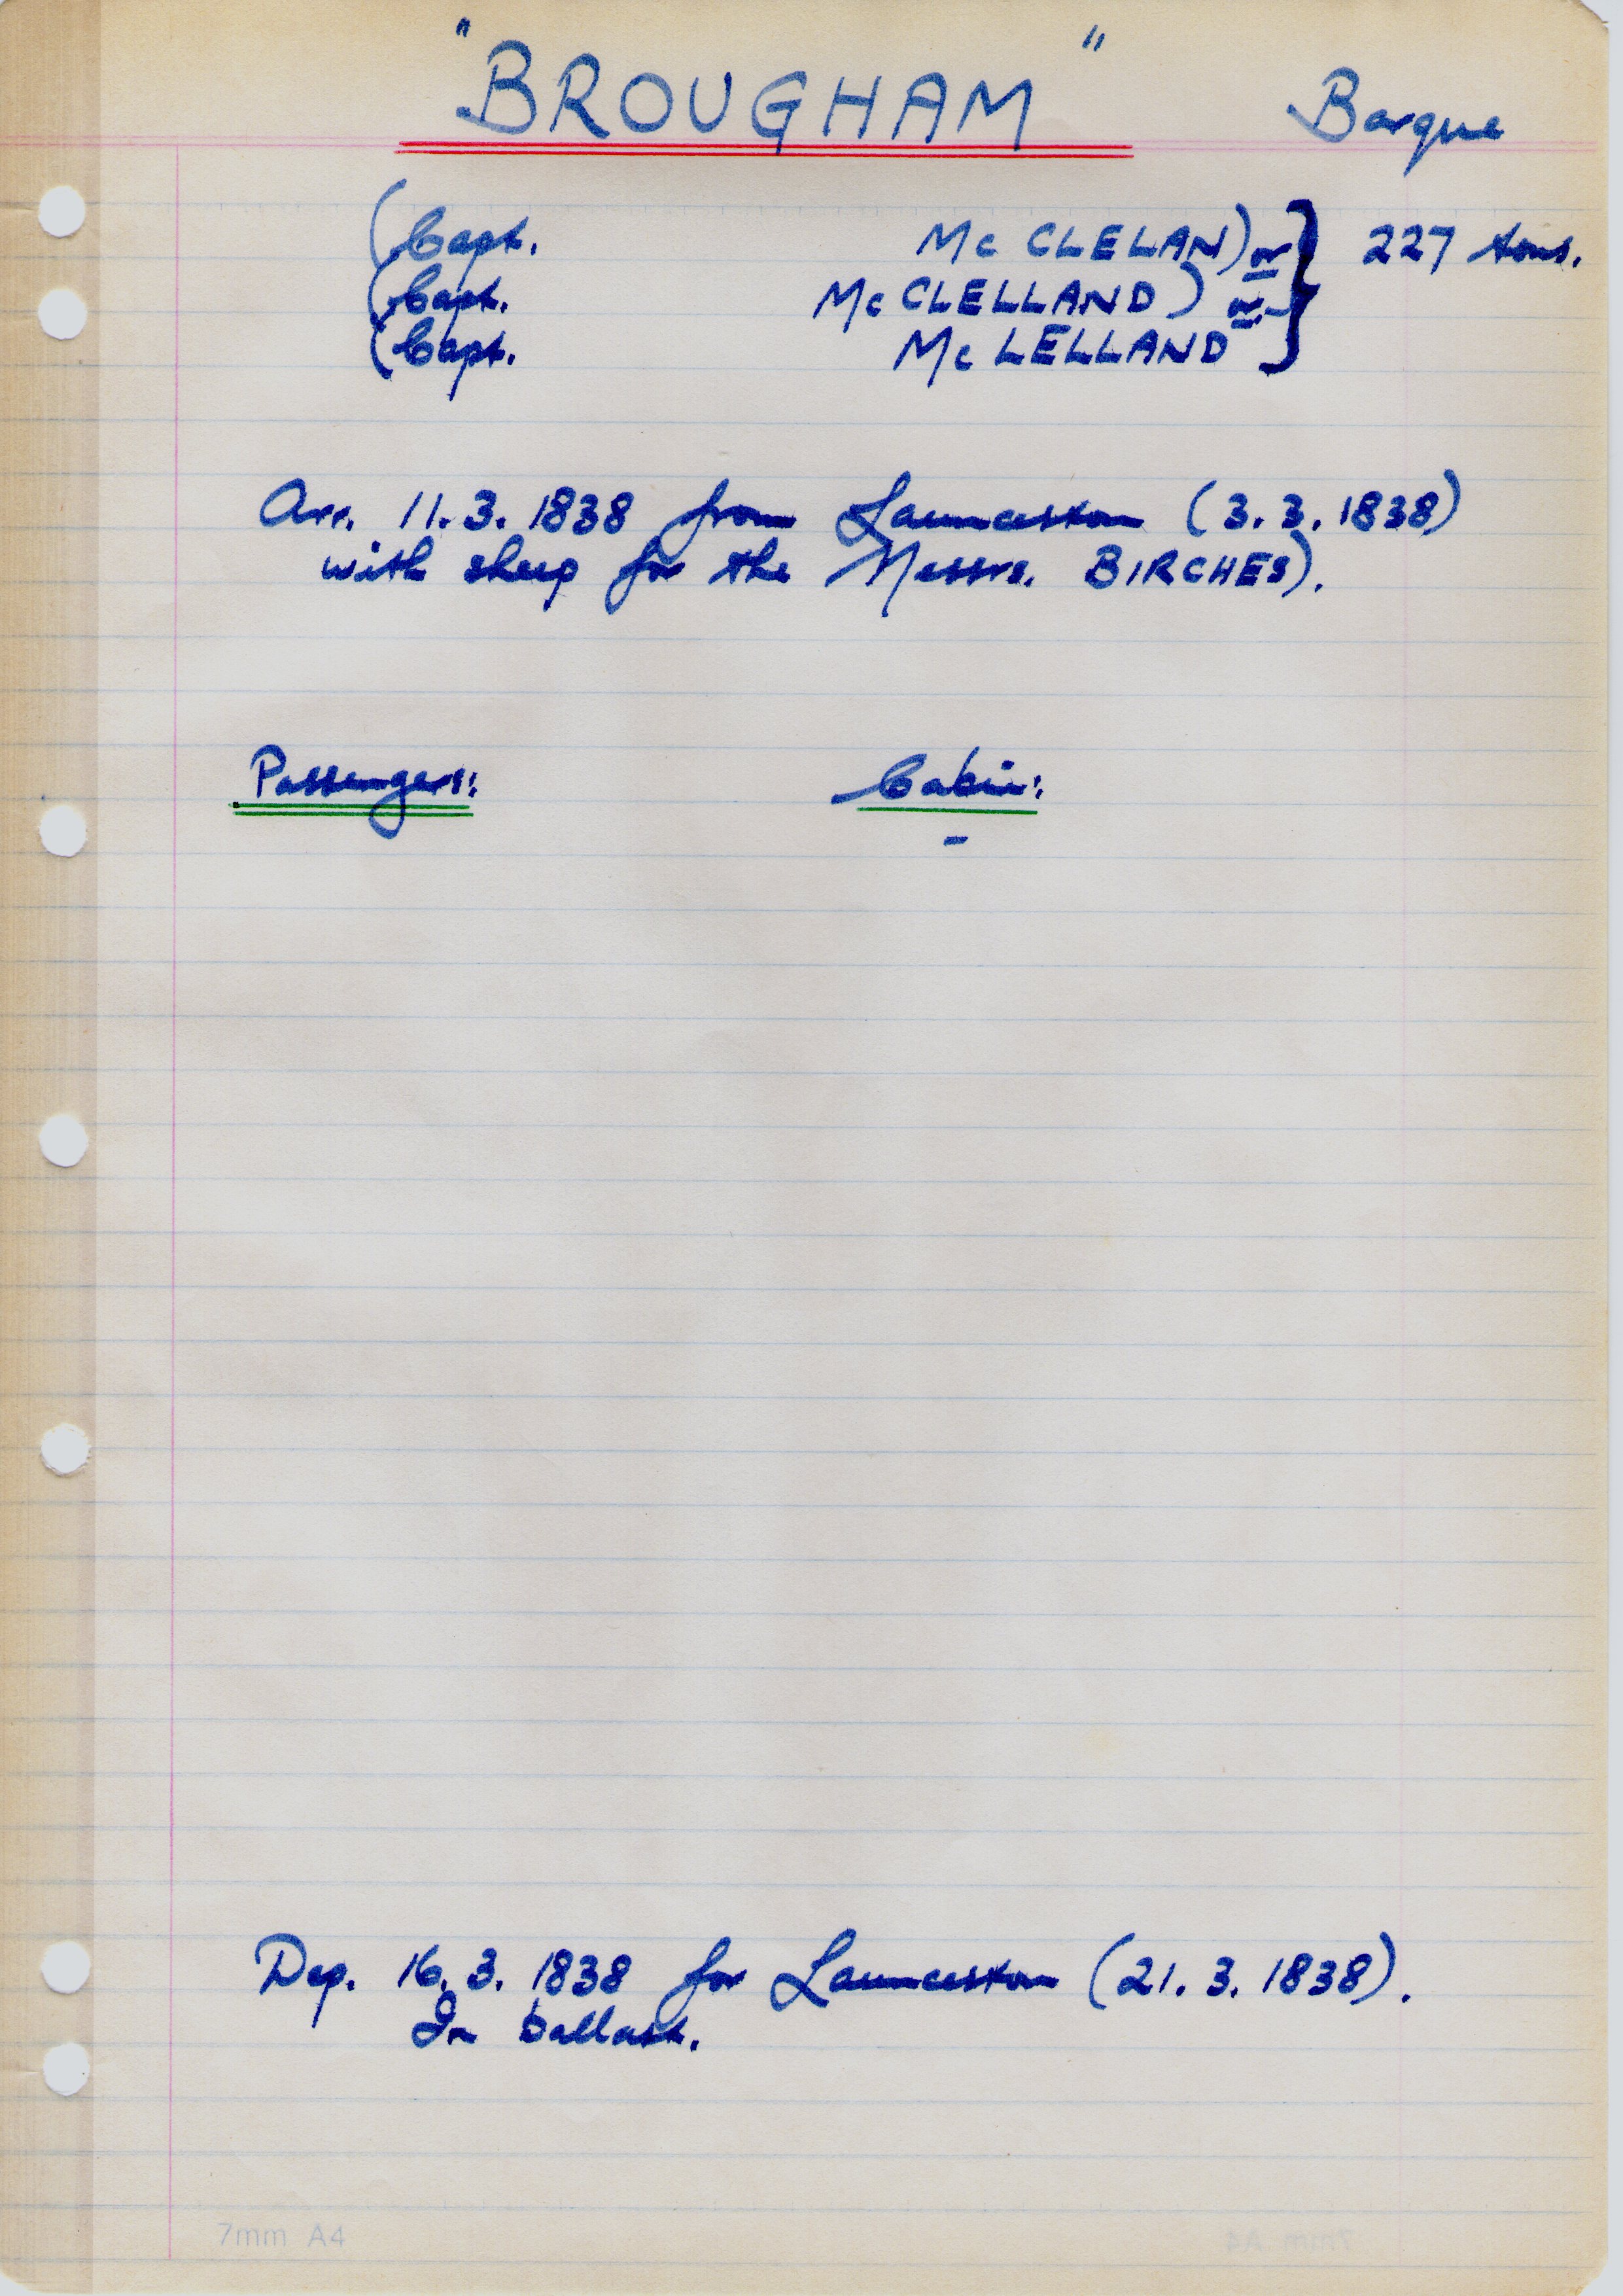 "BROUGHAM" Barque
(Capt. Mc CLELAN) or } 227 tons.
(Capt. Mc CLELLAND) or
(Capt. Mc LELLAND
Arr. 11.3.1838 from Launceston (3.3.1838)
with sheep for the Messrs. BIRCHES).
Passengers: Cabin:
-
Dep. 16.3.1838 for Launceston (21.3.1838).
In ballast.
7mm A4